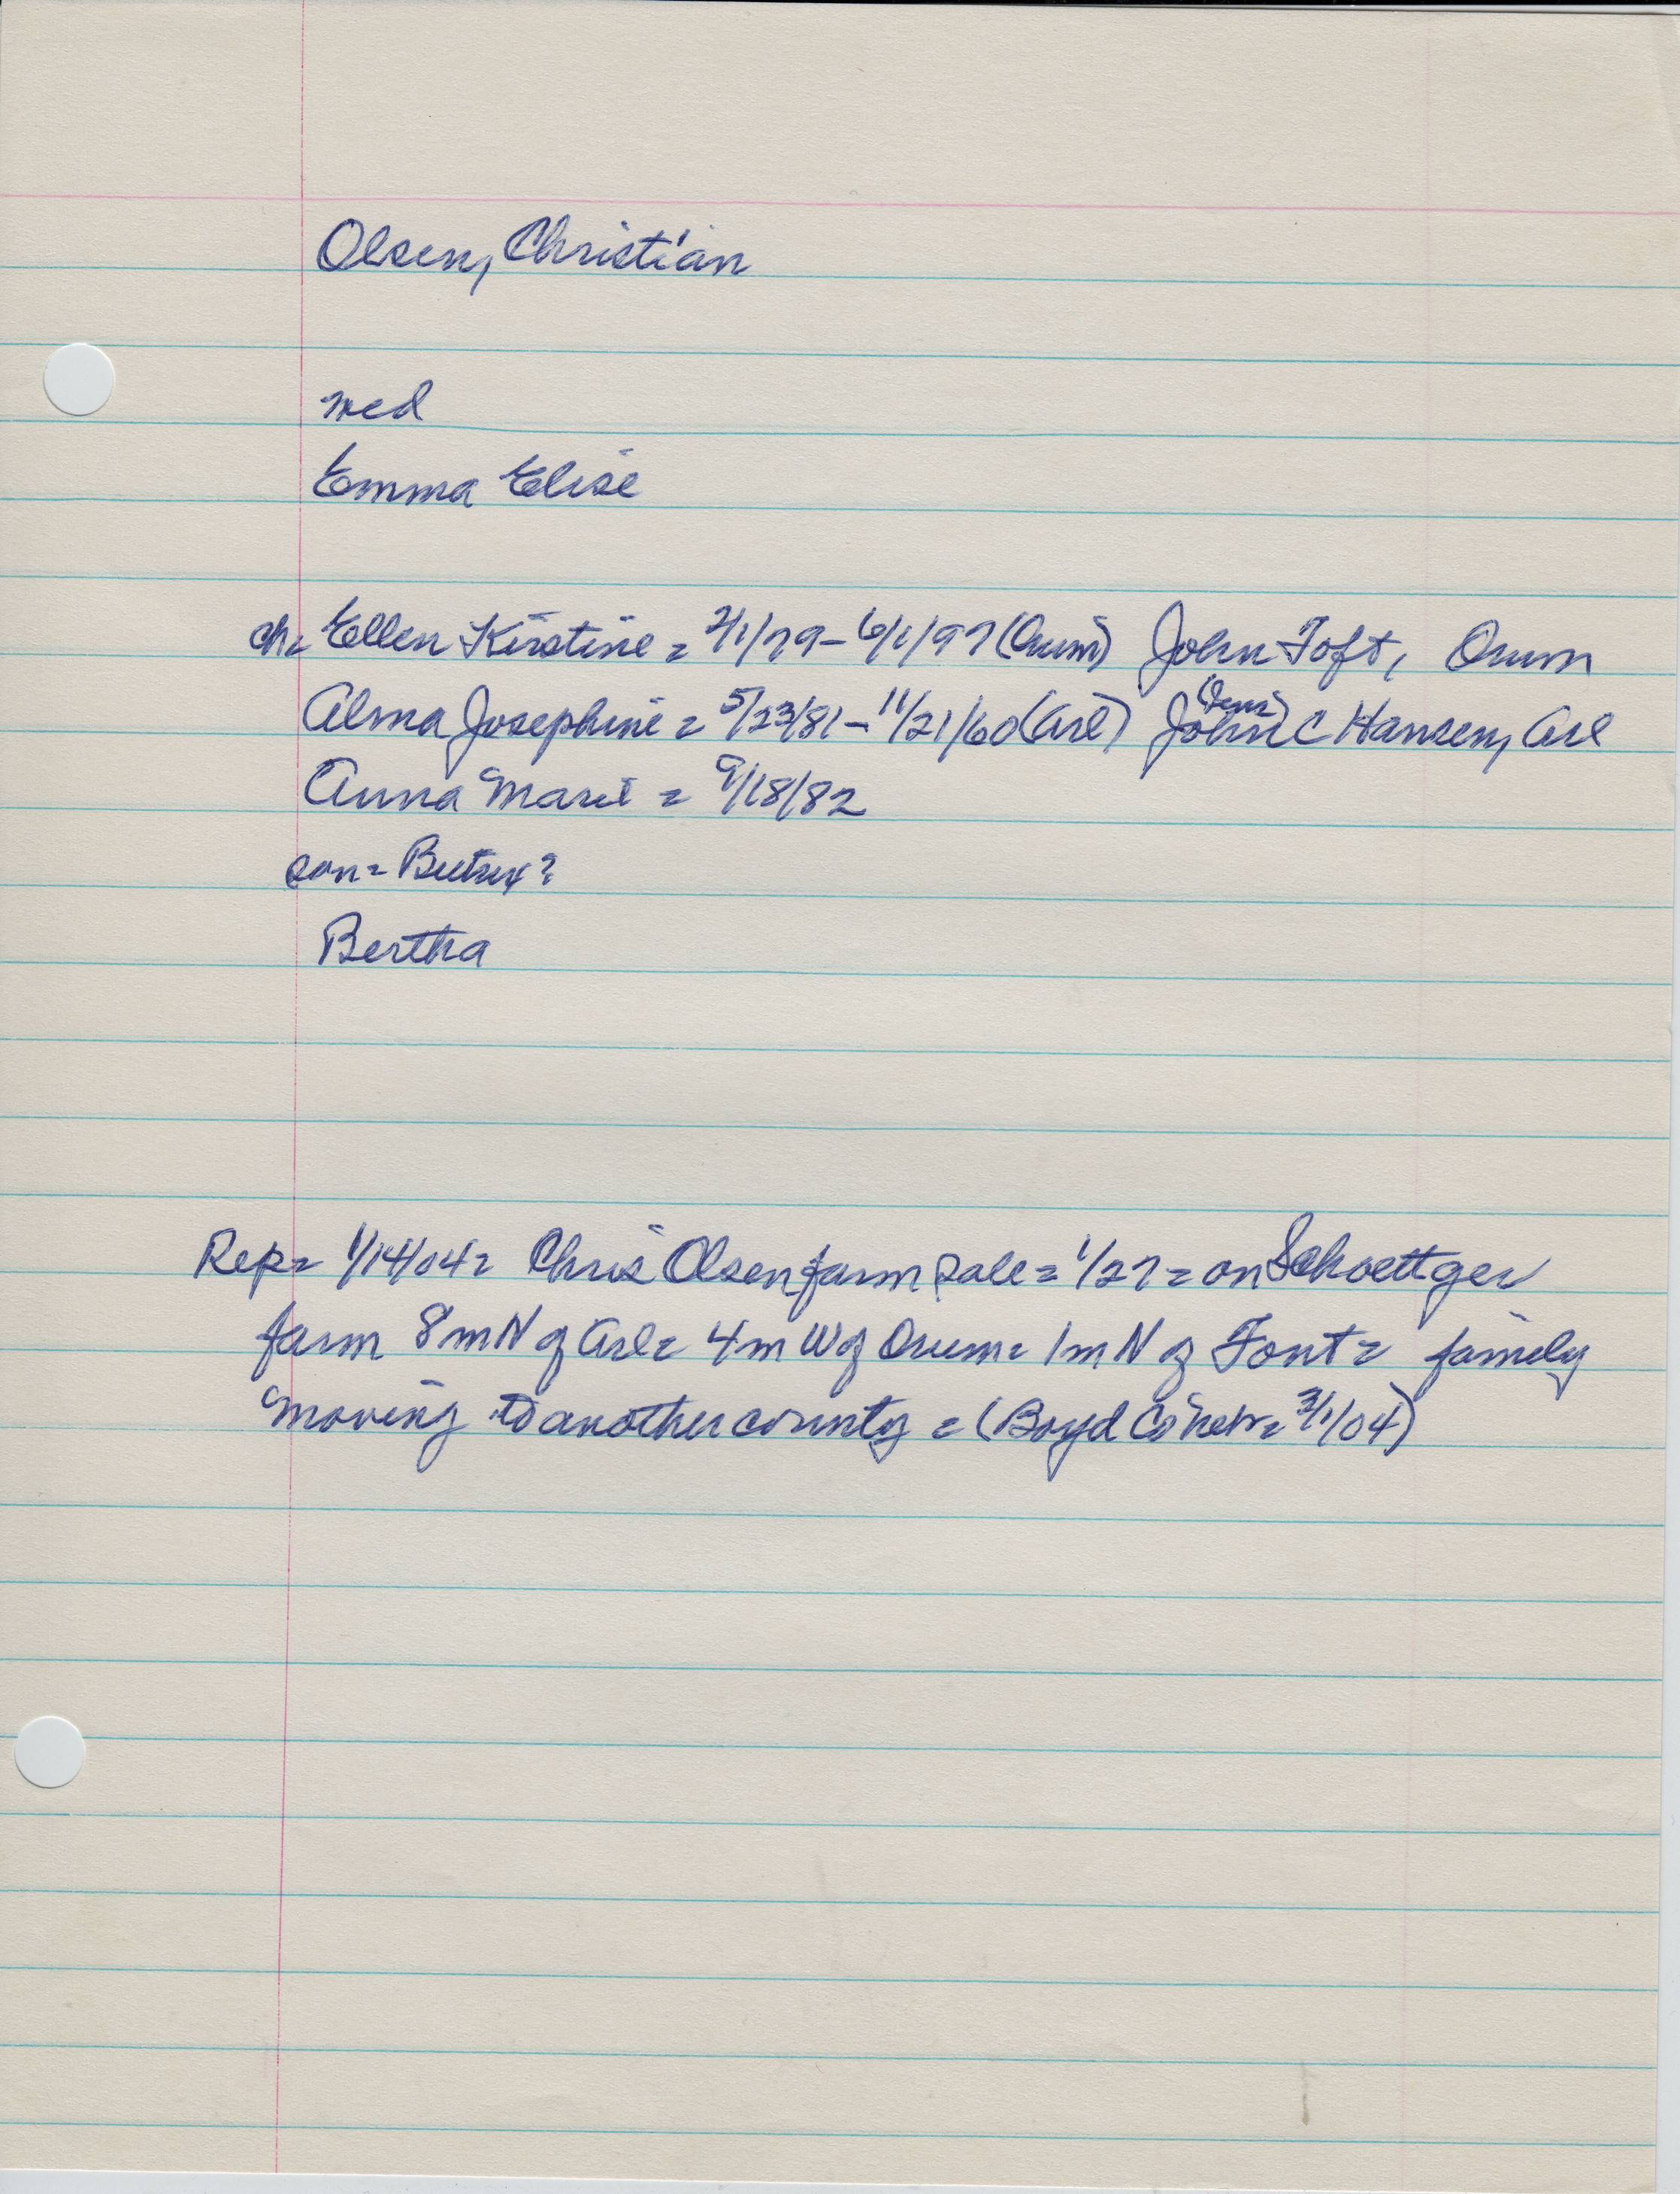 Olsen, Christian
med
Emma Elise
ch= Ellen Kirstine = 2/1/79 - 6/1/97 (Orum) John Toft, Orum
(Dens)
Alma Josephine = 5/23/81 - 11/21/60 (Arl) John C Hansen, Arl
Anna Marie = 9/18/82
son =
Bertha
Rep= 1/14/04= Chris Olsen farm sale = 1/27 = on Schoettger
farm 8 m N of Arl= 4 m W of Orum= 1 m N of Font= family
moving to another county = (Boyd Co Neb= 3/1/04)